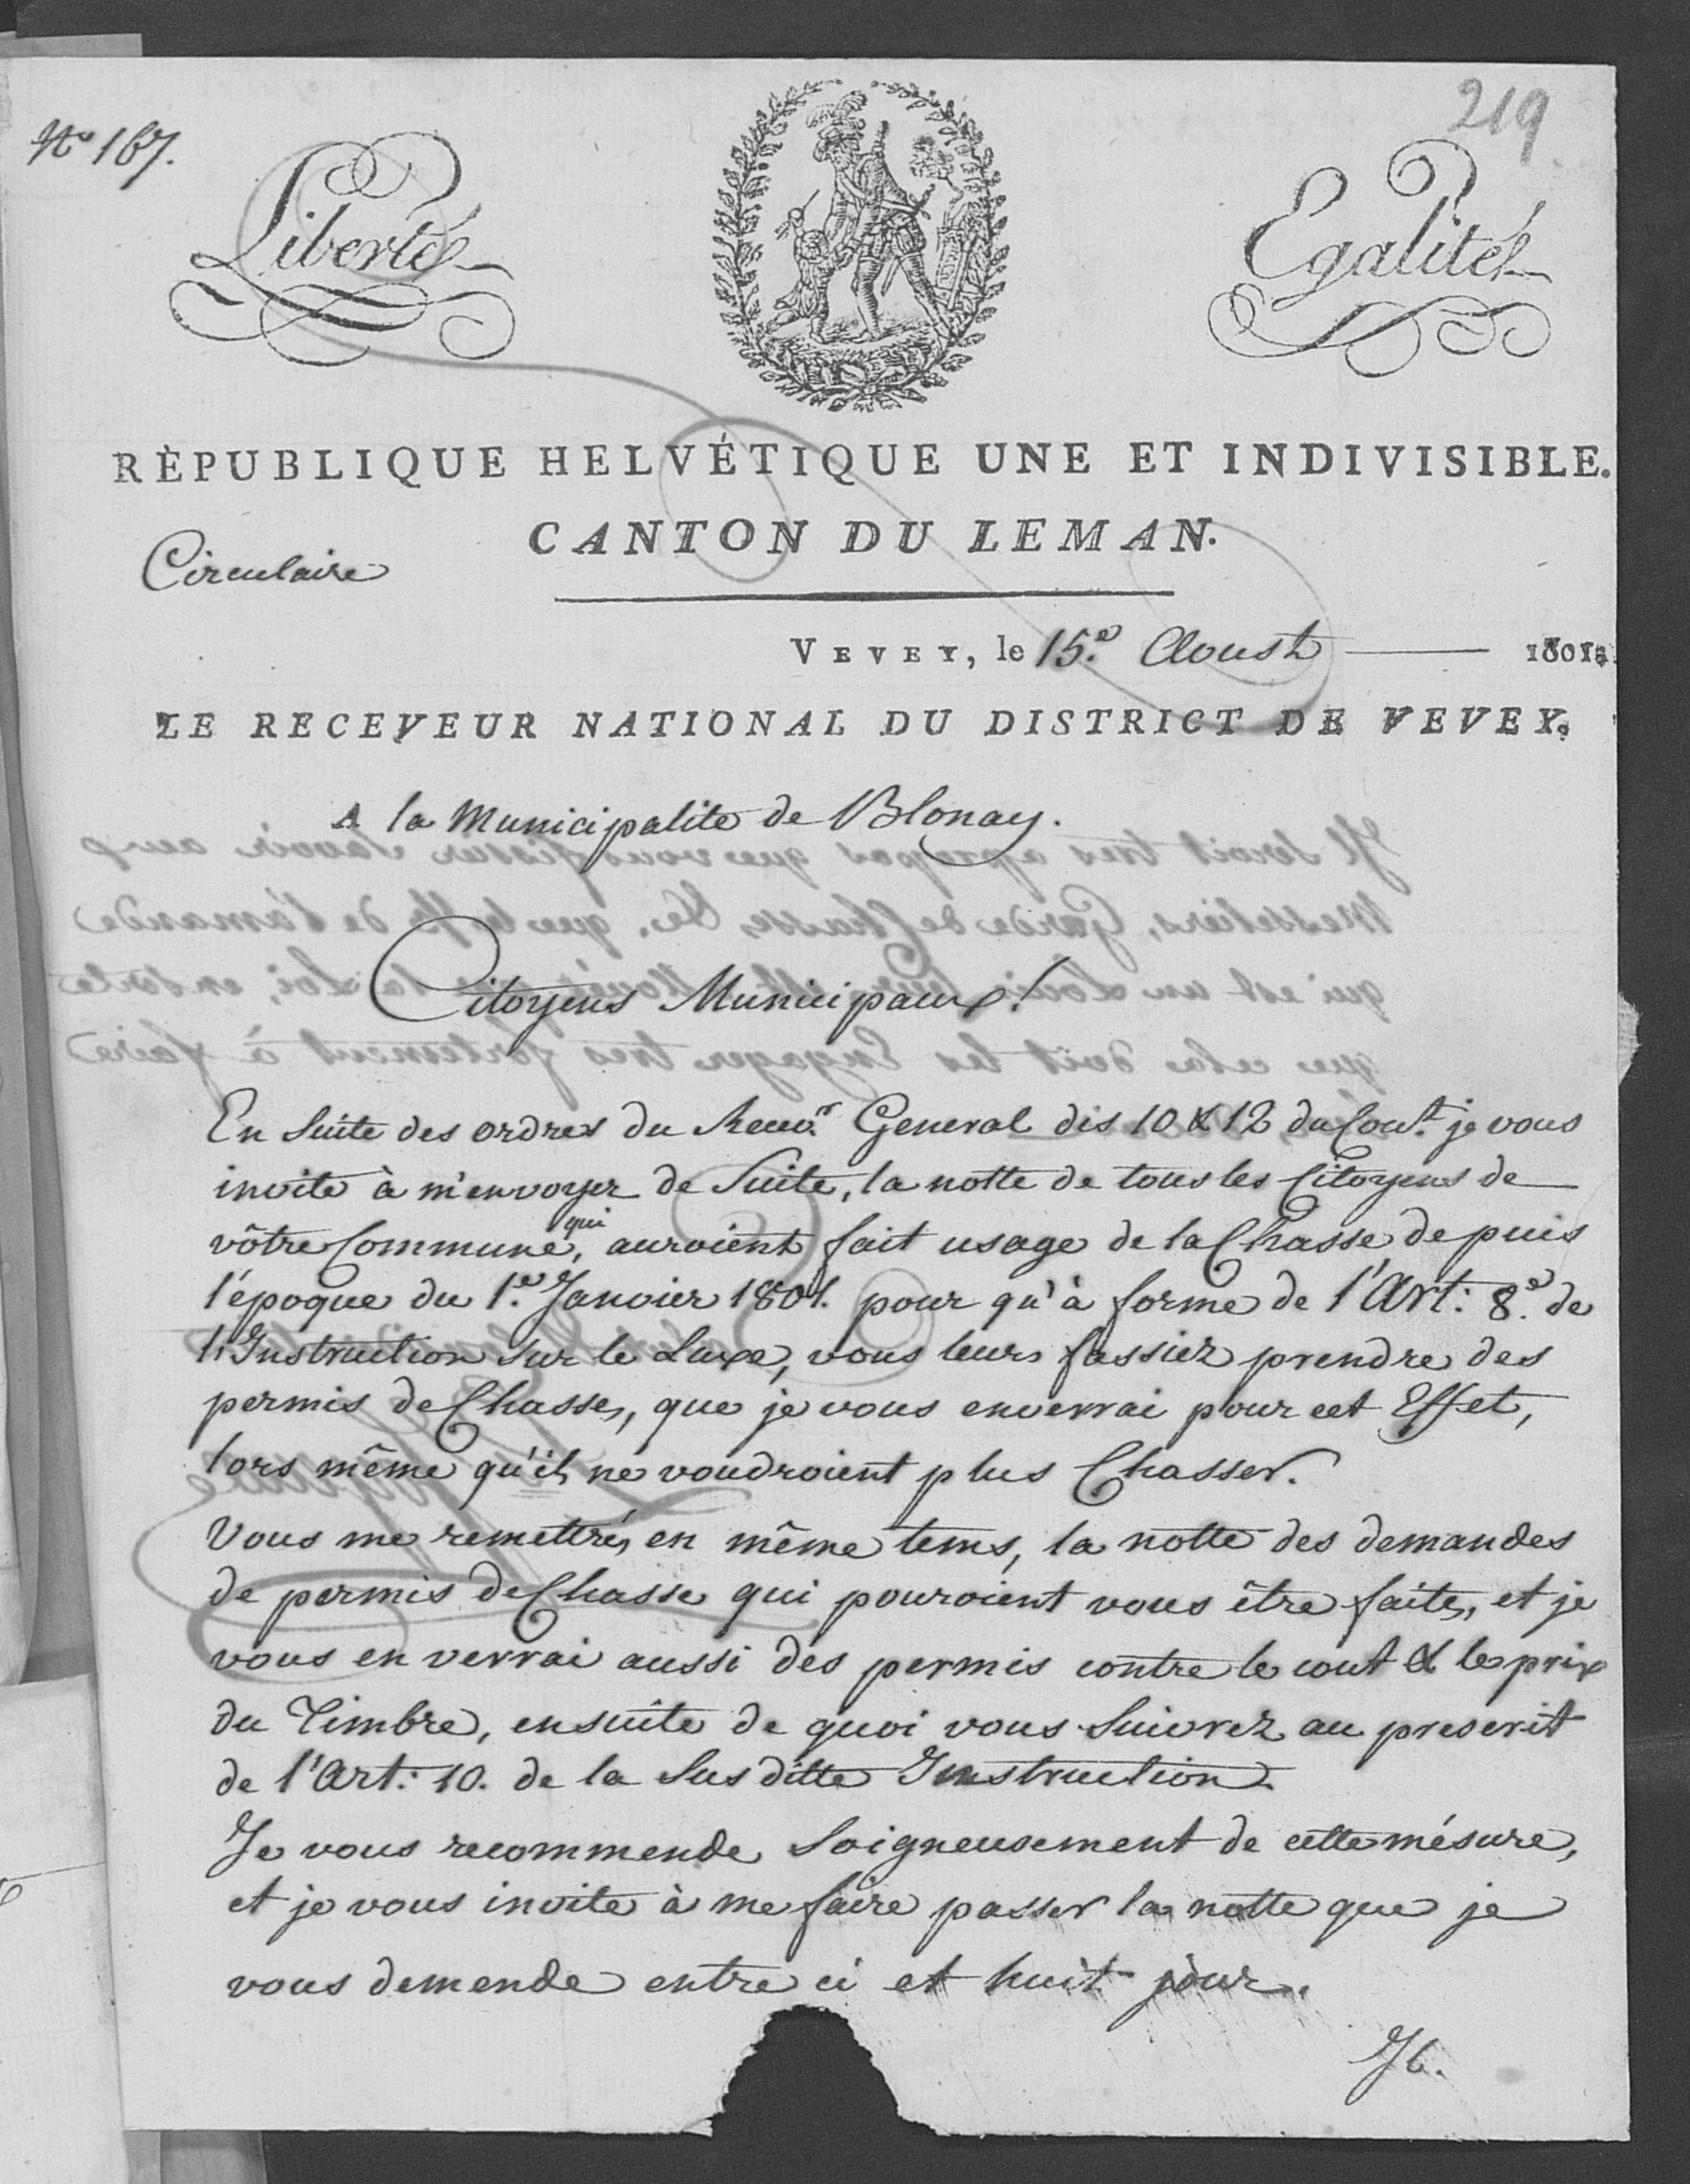 219
N° 167.
Liberté
Egalité
RÈPUBLIQUE HELVÉTIQUE UNE ET INDIVISIBLE.
CANTON DU LEMAN.
Circulaire
VEVEY, le 15.e Aoust 1801.
LE RECEVEUR NATIONAL DU DISTRICT DE VEVEY.
A la Municipalité de Blonay.
Citoyens Municipaux!
En suite des ordres du Recev.r General dis 10 & 12 du Cour.t je vous
invite à m'envoyer de Suite, la notte de tous les Citoyens de
vôtre Commune, qui auroient fait usage de la Chasse depuis
l'époque du 1.e Janvier 1801. pour qu'à forme de l'Art: 8.e de
l'Instruction sur le Luxe, vous leurs fassiez prendre des
permis de Chasse, que je vous enverrai pour cet Effet,
lors même qu'ils ne voudroient plus Chasser.
Vous me remettrés en même tems, la notte des demandes
de permis de Chasse qui pouroient vous être faites, et je
vous en verrai aussi des permis contre le cout & le prix
du Timbre, ensuite de quoi vous suivrez au prescrit
de l'Art: 10. de la Sus ditte Instruction.
Je vous recommende soigneusement de cette mésure,
et je vous invite à me faire passer la notte que je
vous demende entre ci et huit jours.
Il.